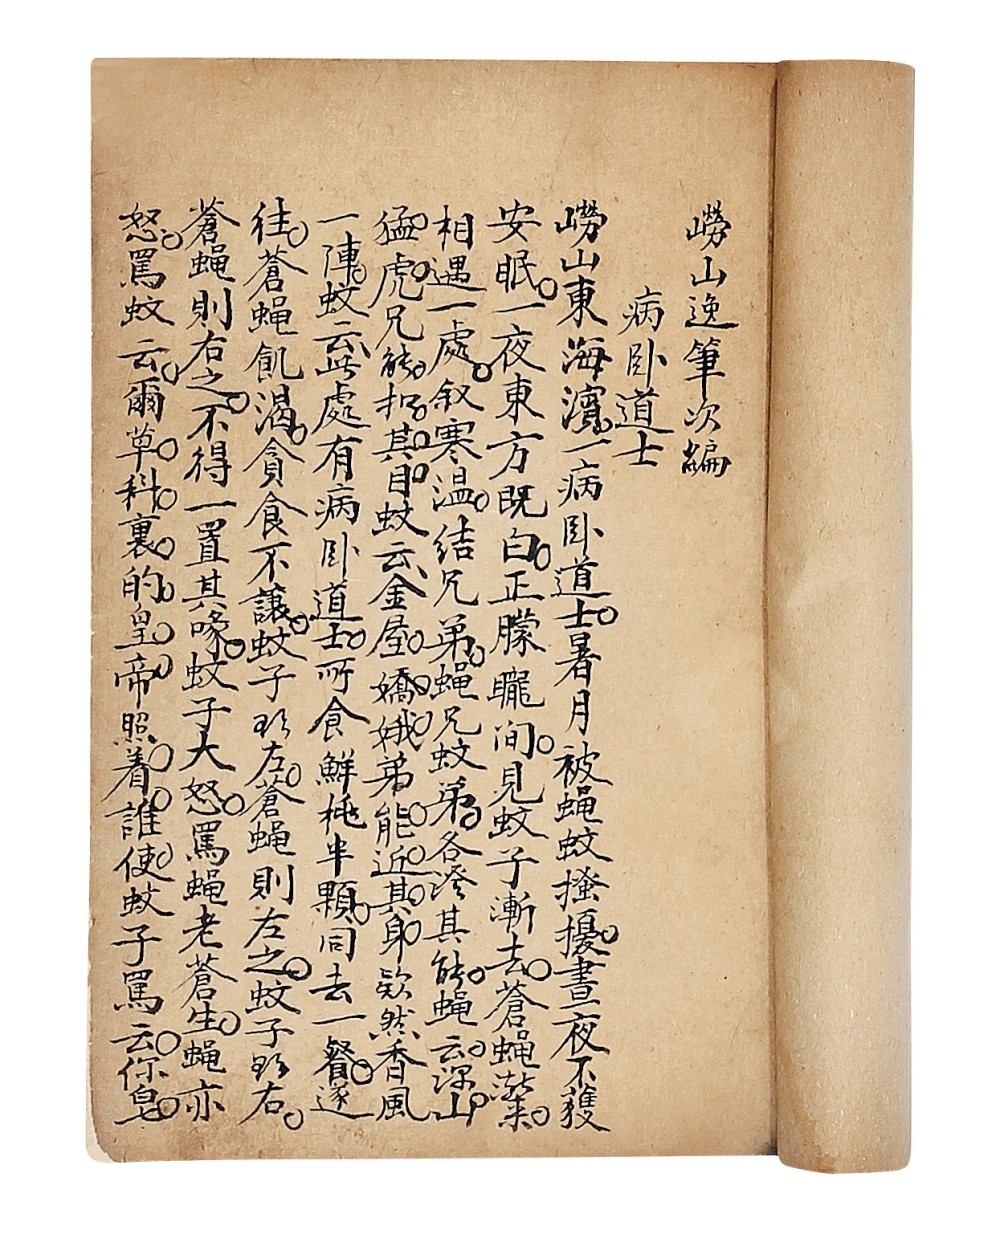 嶗山逸筆次編
病卧道士
嶗山東海濵。一病卧道士。暑月被蝇蚊搔擾。晝夜不獲
安眠。一夜東方既白。正朦朧间。見蚊子漸去。蒼蝇漸來。
相遇一處。叙寒温。結兄弟。蝇兄蚊弟。各逞其能。蝇云。深山。
猛。虎。兄能。扣。其。目。蚊云、金屋。嬌。娥。弟能。近。其。身。欻然香風
一陣。蚊云、此處有病卧道士。所食鮮桃半顆。同去一餐。遂
往。蒼蝇飢渴。貪食不讓。蚊子欲左。蒼蝇則左之。蚊子欲右。
蒼蝇則右之。不得一置其喙。蚊子大怒。罵蝇老蒼生。蝇亦
怒。罵蚊云。爾草。科。裏。的。皇。帝。照着。誰。使。蚊子罵云。你皇。